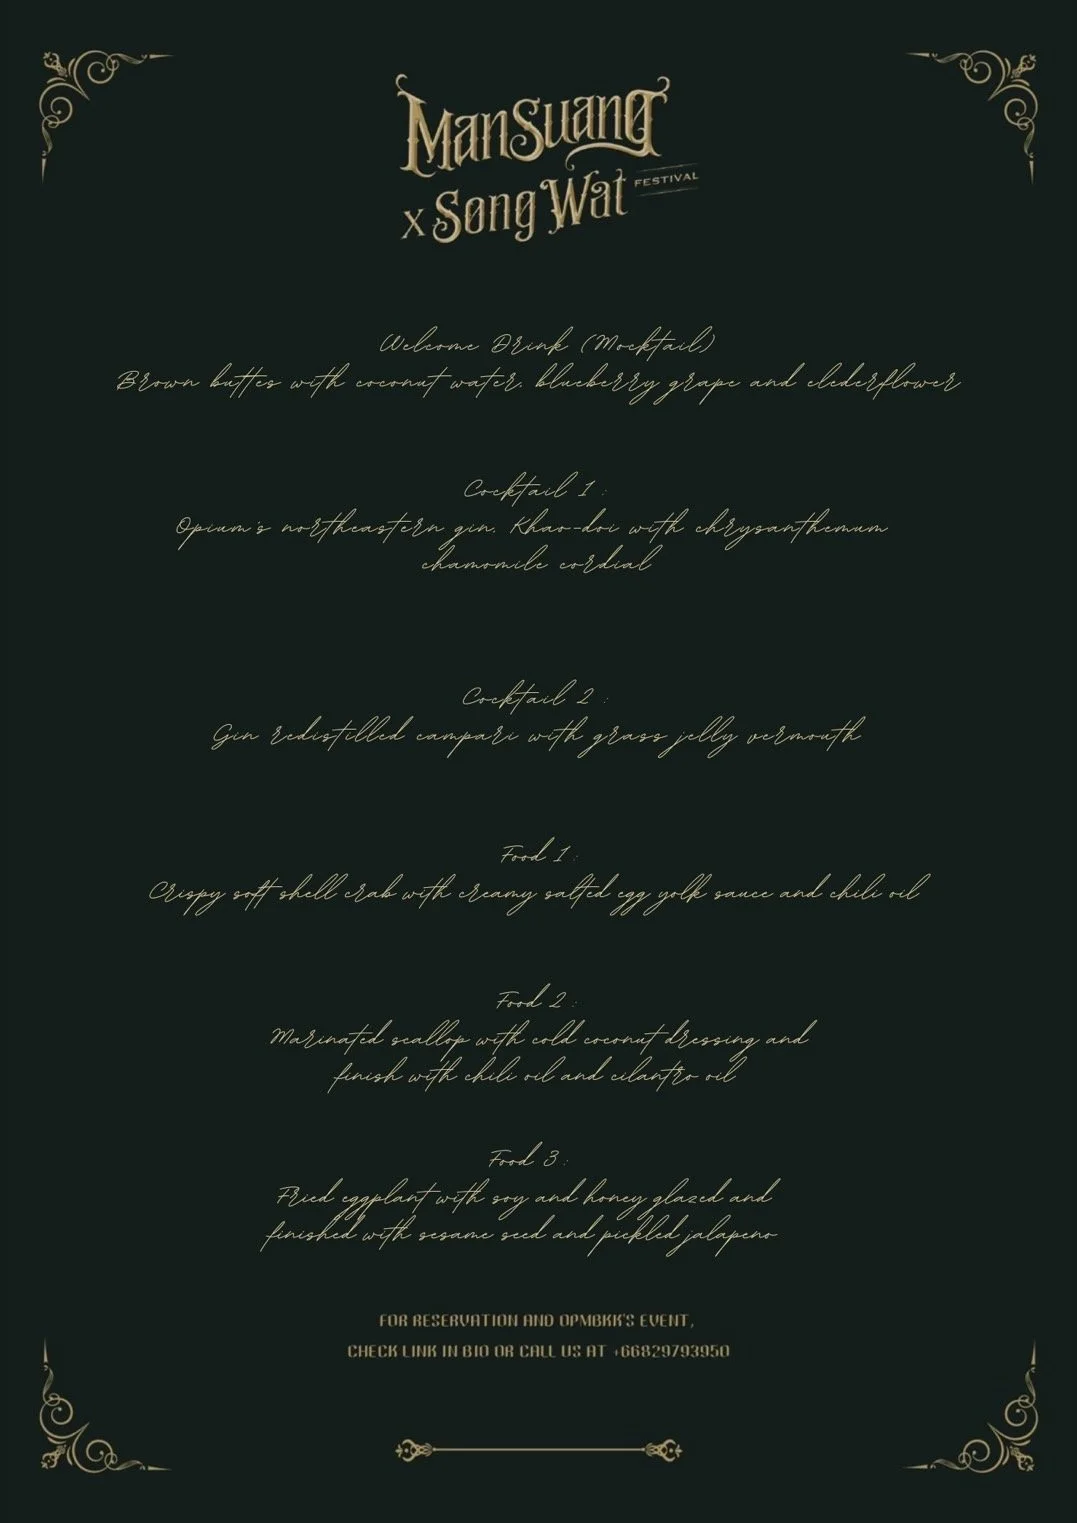 ManSuang
x Song Wat FESTIVAL
Welcome Drink (Mocktail)
Brown buttes with coconut water, blueberry grape and elederflower
Cocktail 1 :
Opium's northeastern gin, Khao-doi with chrysanthemum
chamomile cordial
Cocktail 2 :
Gin redistilled campari with grass jelly vermouth
Food 1 :
Crispy soft shell crab with creamy salted egg yolk sauce and chili oil
Food 2 :
Marinated scallop with cold coconut dressing and
finish with chili oil and cilantro oil
Food 3 :
Fried eggplant with soy and honey glazed and
finished with sesame seed and pickled jalapeno
FOR RESERVATION AND OPMBKK'S EVENT,
CHECK LINK IN BIO OR CALL US AT +66829793950